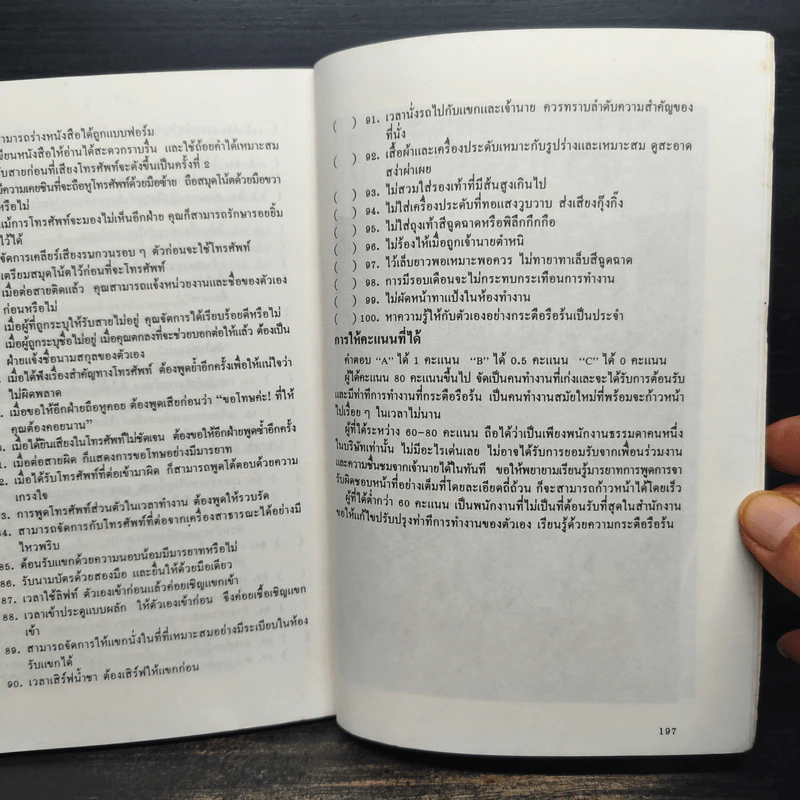 ามารถร่างหนังสือได้ถูกแบบฟอร์ม
ขียนหนังสือให้อ่านได้สะดวกราบรื่น และใช้ถ้อยคำได้เหมาะสม
ับสายก่อนที่เสียงโทรศัพท์จะดังขึ้นเป็นครั้งที่ 2
ีความเคยชินที่จะถือหูโทรศัพท์ด้วยมือซ้าย ถือสมุดโน้ตด้วยมือขวา
หรือไม่
แม้การโทรศัพท์จะมองไม่เห็นอีกฝ่าย คุณก็สามารถรักษารอยยิ้ม
ไว้ได้
จัดการเคลียร์เสียงรบกวนรอบ ๆ ตัวก่อนจะใช้โทรศัพท์
เตรียมสมุดโน้ตไว้ก่อนที่จะโทรศัพท์
เมื่อต่อสายติดแล้ว คุณสามารถแจ้งหน่วยงานและชื่อของตัวเอง
ก่อนหรือไม่
เมื่อผู้ที่ถูกระบุให้รับสายไม่อยู่ คุณจัดการได้เรียบร้อยดีหรือไม่
เมื่อผู้ถูกระบุชื่อไม่อยู่ เมื่อคุณตกลงที่จะช่วยบอกต่อให้แล้ว ต้องเป็น
ฝ่ายแจ้งชื่อนามสกุลของตัวเอง
. เมื่อได้ฟังเรื่องสำคัญทางโทรศัพท์ ต้องพูดย้ำอีกครั้งเพื่อให้แน่ใจว่า
ไม่ผิดพลาด
. เมื่อขอให้อีกฝ่ายถือหูคอย ต้องพูดเสียก่อนว่า "ขอโทษค่ะ! ที่ให้
คุณต้องคอยนาน"
0. เมื่อได้ยินเสียงในโทรศัพท์ไม่ชัดเจน ต้องขอให้อีกฝ่ายพูดซ้ำอีกครั้ง
1. เมื่อต่อสายผิด ก็แสดงการขอโทษอย่างมีมารยาท
2. เมื่อได้รับโทรศัพท์ที่ต่อเข้ามาผิด ก็สามารถพูดโต้ตอบด้วยความ
เกรงใจ
83. การพูดโทรศัพท์ส่วนตัวในเวลาทำงาน ต้องพูดให้รวบรัด
84. สามารถจัดการกับโทรศัพท์ที่ต่อจากเครื่องสาธารณะได้อย่างมี
ไหวพริบ
85. ต้อนรับแขกด้วยความนอบน้อมมีมารยาทหรือไม่
86. รับนามบัตรด้วยสองมือ และยื่นให้ด้วยมือเดียว
87. เวลาใช้ลิฟท์ ตัวเองเข้าก่อนแล้วค่อยเชิญแขกเข้า
88. เวลาเข้าประตูแบบผลัก ให้ตัวเองเข้าก่อน จึงค่อยเชื้อเชิญแขก
เข้า
89. สามารถจัดการให้แขกนั่งในที่ที่เหมาะสมอย่างมีระเบียบในห้อง
รับแขกได้
90. เวลาเสิร์ฟน้ำชา ต้องเสิร์ฟให้แขกก่อน
( ) 91. เวลานั่งรถไปกับแขกและเจ้านาย ควรทราบลำดับความสำคัญของ
ที่นั่ง
( ) 92. เสื้อผ้าและเครื่องประดับเหมาะกับรูปร่างและเหมาะสม ดูสะอาด
สง่าผ่าเผย
( ) 93. ไม่สวมใส่รองเท้าที่มีส้นสูงเกินไป
( ) 94. ไม่ใส่เครื่องประดับที่ทอแสงวูบวาบ ส่งเสียงกุ๊งกิ๊ง
( ) 95. ไม่ใส่ถุงเท้าสีฉูดฉาดหรือพิลึกกึกกือ
( ) 96. ไม่ร้องไห้เมื่อถูกเจ้านายตำหนิ
( ) 97. ไว้เล็บยาวพอเหมาะพอควร ไม่ทายาทาเล็บสีฉูดฉาด
( ) 98. การมีรอบเดือนจะไม่กระทบกระเทือนการทำงาน
( ) 99. ไม่ผัดหน้าทาแป้งในห้องทำงาน
( ) 100. หาความรู้ให้กับตัวเองอย่างกระตือรือร้นเป็นประจำ
การให้คะแนนที่ได้
คำตอบ "A" ได้ 1 คะแนน "B" ได้ 0.5 คะแนน "C" ได้ 0 คะแนน
ผู้ได้คะแนน 80 คะแนนขึ้นไป จัดเป็นคนทำงานที่เก่งและจะได้รับการต้อนรับ
และมีท่าทีการทำงานที่กระตือรือร้น เป็นคนทำงานสมัยใหม่ที่พร้อมจะก้าวหน้า
ไปเรื่อย ๆ ในเวลาไม่นาน
ผู้ที่ได้ระหว่าง 60-80 คะแนน ถือได้ว่าเป็นเพียงพนักงานธรรมดาคนหนึ่ง
ในบริษัทเท่านั้น ไม่มีอะไรเด่นเลย ไม่อาจได้รับการยอมรับจากเพื่อนร่วมงาน
และความชื่นชมจากเจ้านายได้ในทันที ขอให้พยายามเรียนรู้มารยาทการพูดการจา
รับผิดชอบหน้าที่อย่างเต็มที่โดยละเอียดถี่ถ้วน ก็จะสามารถก้าวหน้าได้โดยเร็ว
ผู้ที่ได้ต่ำกว่า 60 คะแนน เป็นพนักงานที่ไม่เป็นที่ต้อนรับที่สุดในสำนักงาน
ขอให้แก้ไขปรับปรุงท่าทีการทำงานของตัวเอง เรียนรู้ด้วยความกระตือรือร้น
197